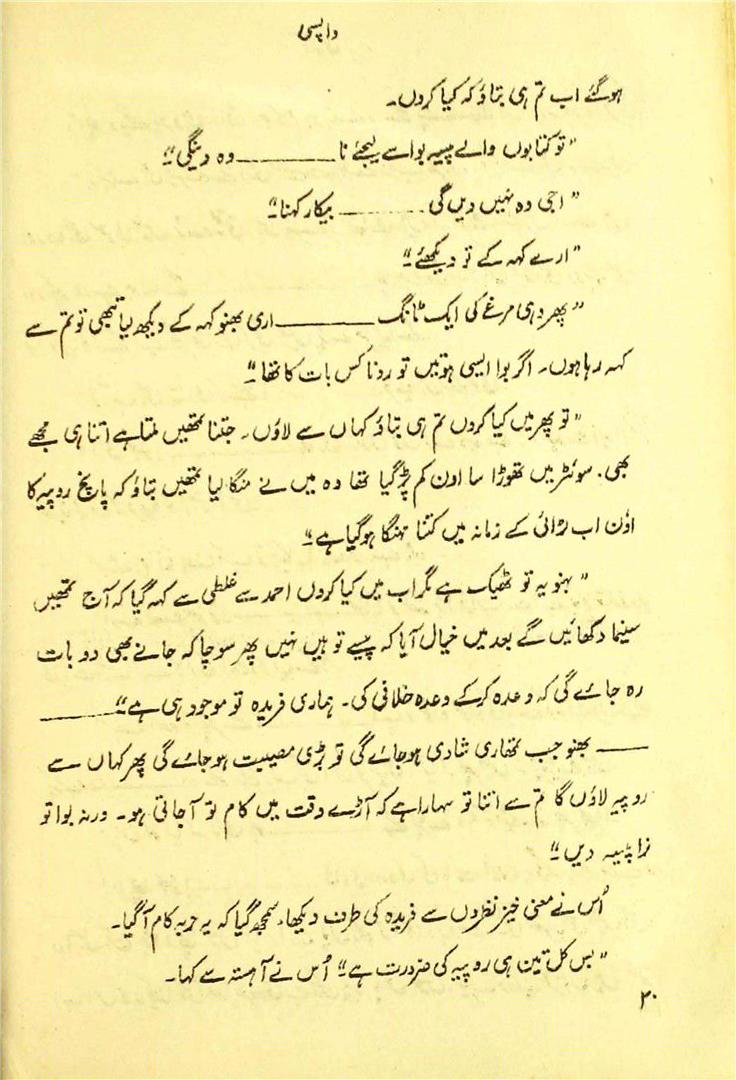 واپسی
ہوگئے اب تم ہی بتاؤ کہ کیا کروں۔
"تو کتابوں والے پیسے بوا سے لیجئے نا ــــــــــ وہ دینگی"
"اجی وہ نہیں دیں گی ــــــــــ بیکار کہنا"
"ارے کہہ کے تو دیکھئے"
"پھر وہی مرغے کی ایک ٹانگ ــــــــــ اری بھنو کہہ کے دیکھ لیا تبھی تو تم سے
کہہ رہا ہوں۔ اگر بوا ایسی ہوتیں تو رونا کس بات کا تھا"
"تو پھر میں کیا کروں تم ہی بتاؤ کہاں سے لاؤں۔ جتنا تمھیں ملتا ہے اتنا ہی مجھے
بھی۔ سوئٹر میں تھوڑا سا اون کم پڑ گیا تھا وہ میں نے منگا لیا تمھیں بتاؤ کہ پانچ روپیہ کا
اوُن اب لڑائی کے زمانہ میں کتنا مہنگا ہوگیا ہے"
"بہنو یہ تو ٹھیک ہے مگر اب میں کیا کروں احمد سے غلطی سے کہہ گیا کہ آج تمھیں
سینما دکھائیں گے بعد میں خیال آیا کہ پیسے تو ہیں نہیں پھر سوچا کہ جانے بھی دو بات
رہ جائے گی کہ وعدہ کرکے وعدہ خلافی کی۔ ہماری فریدہ تو موجود ہی ہے" ــــــــــ
ــــــ بھنو جب تمھاری شادی ہوجائے گی تو بڑی مصیبت ہوجائے گی پھر کہاں سے
روپیہ لاؤں گا تم سے اتنا تو سہارا ہے کہ آڑے وقت میں کام تو آجاتی ہو۔ ورنہ بوا تو
نرا پیسہ دیں"
اُس نے معنی خیز نظروں سے فریدہ کی طرف دیکھا، سمجھ گیا کہ یہ حربہ کام آگیا۔
"بس کل تین ہی روپیہ کی ضرورت ہے" اُس نے آہستہ سے کہا۔
۲۰